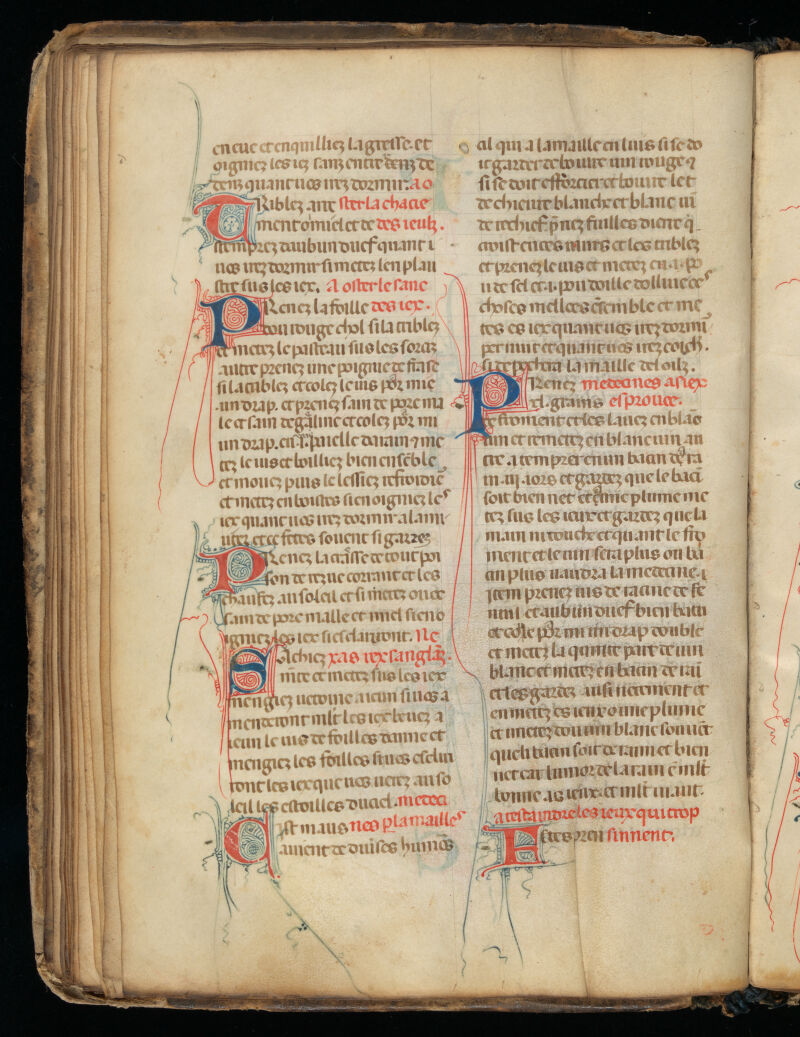 en eue et enquilliez la gresse. et
oigniez les iex sanz entre denz de
denz quant uos irez dormir. a o
Triblez ane ster la chacie
ment o miel et de des ieulz.
stemprez daubun douef quant i
uos irez dormir si metez len plau
stre sus les iex. A oster le sanc
Prenez la foille des iex.
dou rouge chol si la triblez
et metez le pasteau sus les sorciz
autre prenez une poignie de frase
si la triblez et colez le ius por mie
.un drap. et prenez sain de porc ma
le et sain de galine et colez por mi
un drap. en .i. paielle darain et me
tez le ius et boilliez bien ensemble
et mouez puis le lessiez refroidir
et metez en boistes si en oigniez les
iex quant uos irez dormir a la mi
nuit et ce fetes souent si garrez
Prenez la crasse de tout poi
son de iezue corrant et les
chaufez au soleil et si metez oude
sain de porc malle et miel si en o
igniez les iex si esclariront. Ne
Sachiez xas iex sanglaz.
mie et metez sus les iex
mengiez uetoine a ieun si uos a
menderont mlt les iex beuez a
ieun le ius de foilles danne et
mengiez les foilles si uos esclar
ront les iex que uos uerez au so
leil les estoilles du ciel. medeci
Cist maus nes p la maille
auient de diuises humes
al qui a la maille en luis si se do
it garder de boiure uin rouge et
si se doit efforcier et boiure let
de chieure blanche et blanc ui
de rechief pnez fuilles dierre q
croist en ces murs et les triblez
et prenez le ius et metez en .i. po
u de sel et .i. pou doille dolliue ces
choses mellees ensemble et me
tes es iex quant uos irez dormi
per nuit et quant uos irez colch.
si depechera la maille del oilz.
Prenez medecines as iex
xl. grains esprouee.
de froment et les lauez en blanc
uin et remetez en blanc uin au
tre a temprer en un bacin dera
in .iij. iors et gardez que le baci
soit bien net et o une plume me
tez sus les ieux et gardez que la
main ni touche et quant le fro
ment et le uin sera plus ou ba
cin plus uaudra la medecine. i
item prenez ius de racine de fe
noul et aubun douef bien batu
et colle por mi un drap double
et metez la quinte part de uin
blanc et metez en bacin de rai
et les gardez ausi netement et
en metez es ieux o une plume
et metez dou uin blanc souuet
queli bacin soit de rain et bien
net car lumor de larain e mlt
bonne as ieux et mlt uiaut.
a restaindre les ieux qui trop
Fetes pren sinnent.